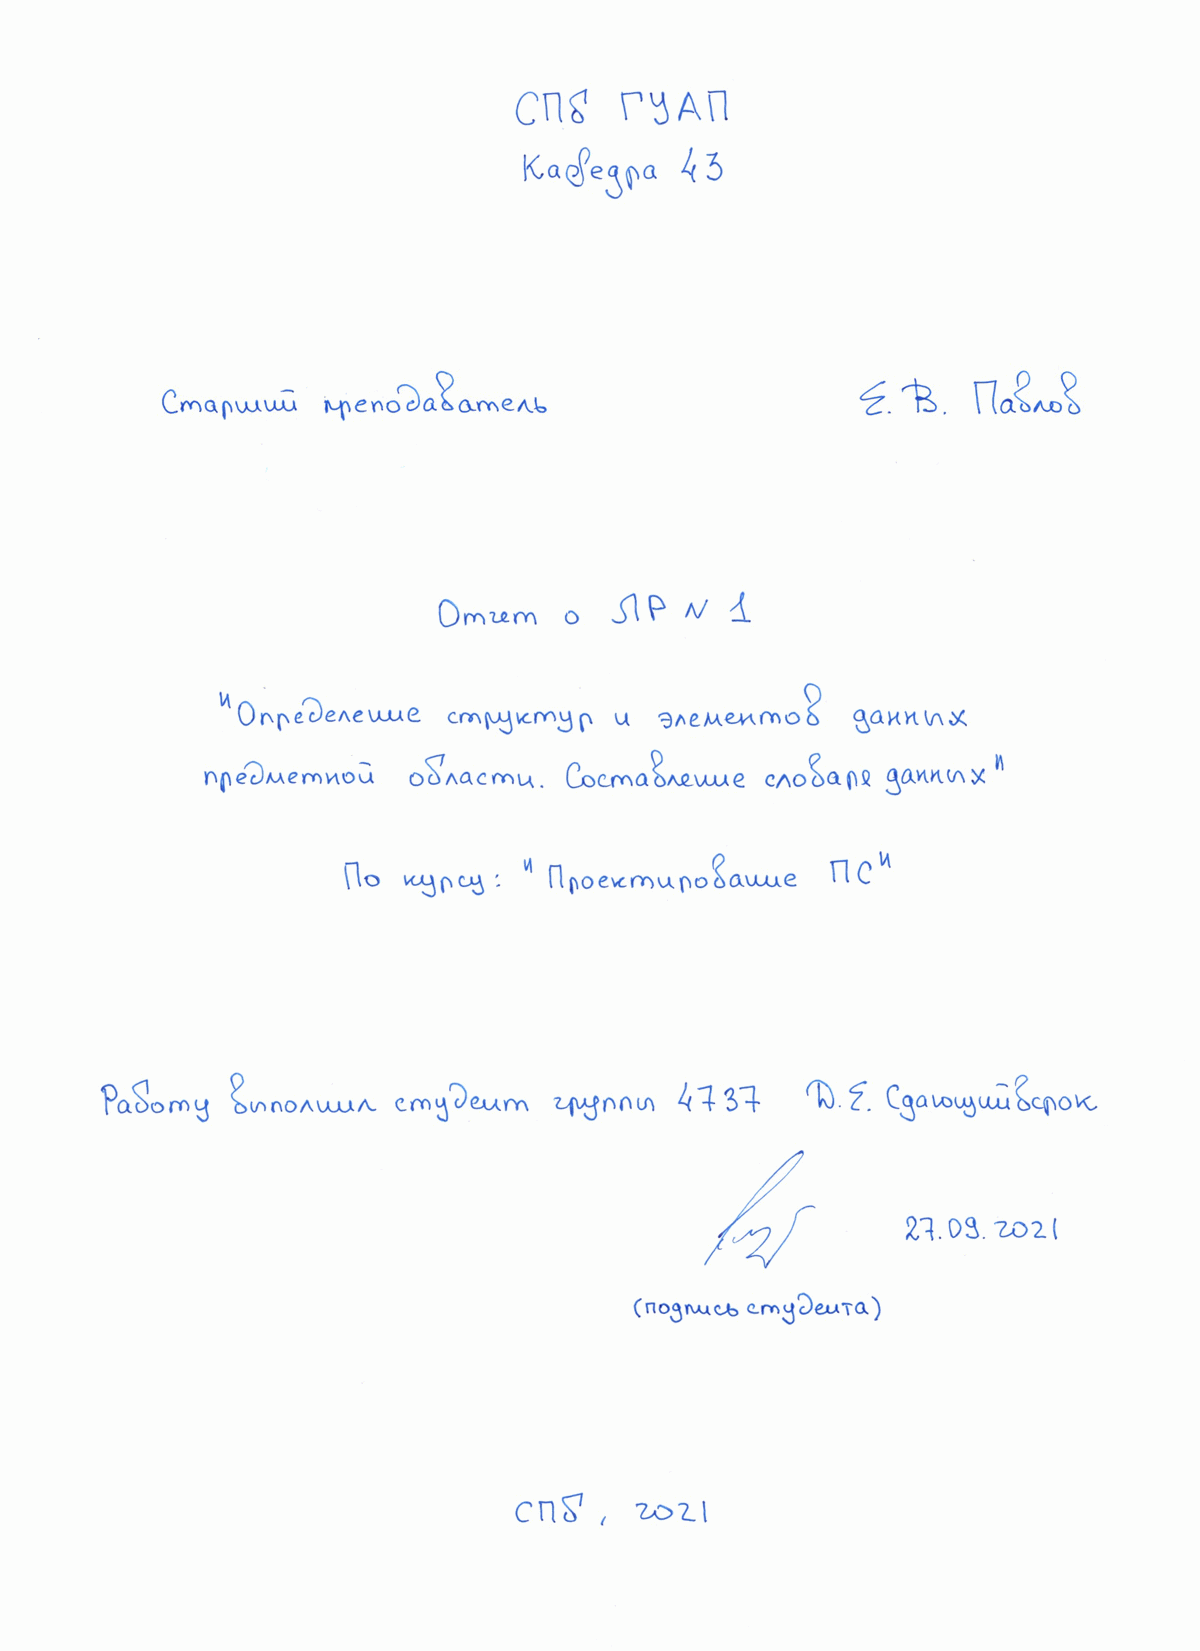 СПб ГУАП
Кафедра 43
Старший преподаватель Е. В. Павлов
Отчет о ЛР N 1
"Определение структур и элементов данных
предметной области. Составление словаря данных"
По курсу: "Проектирование ПС"
Работу выполнил студент группы 4737 Д. Е. Сдающийвсрок
27.09.2021
(подпись студента)
СПб, 2021